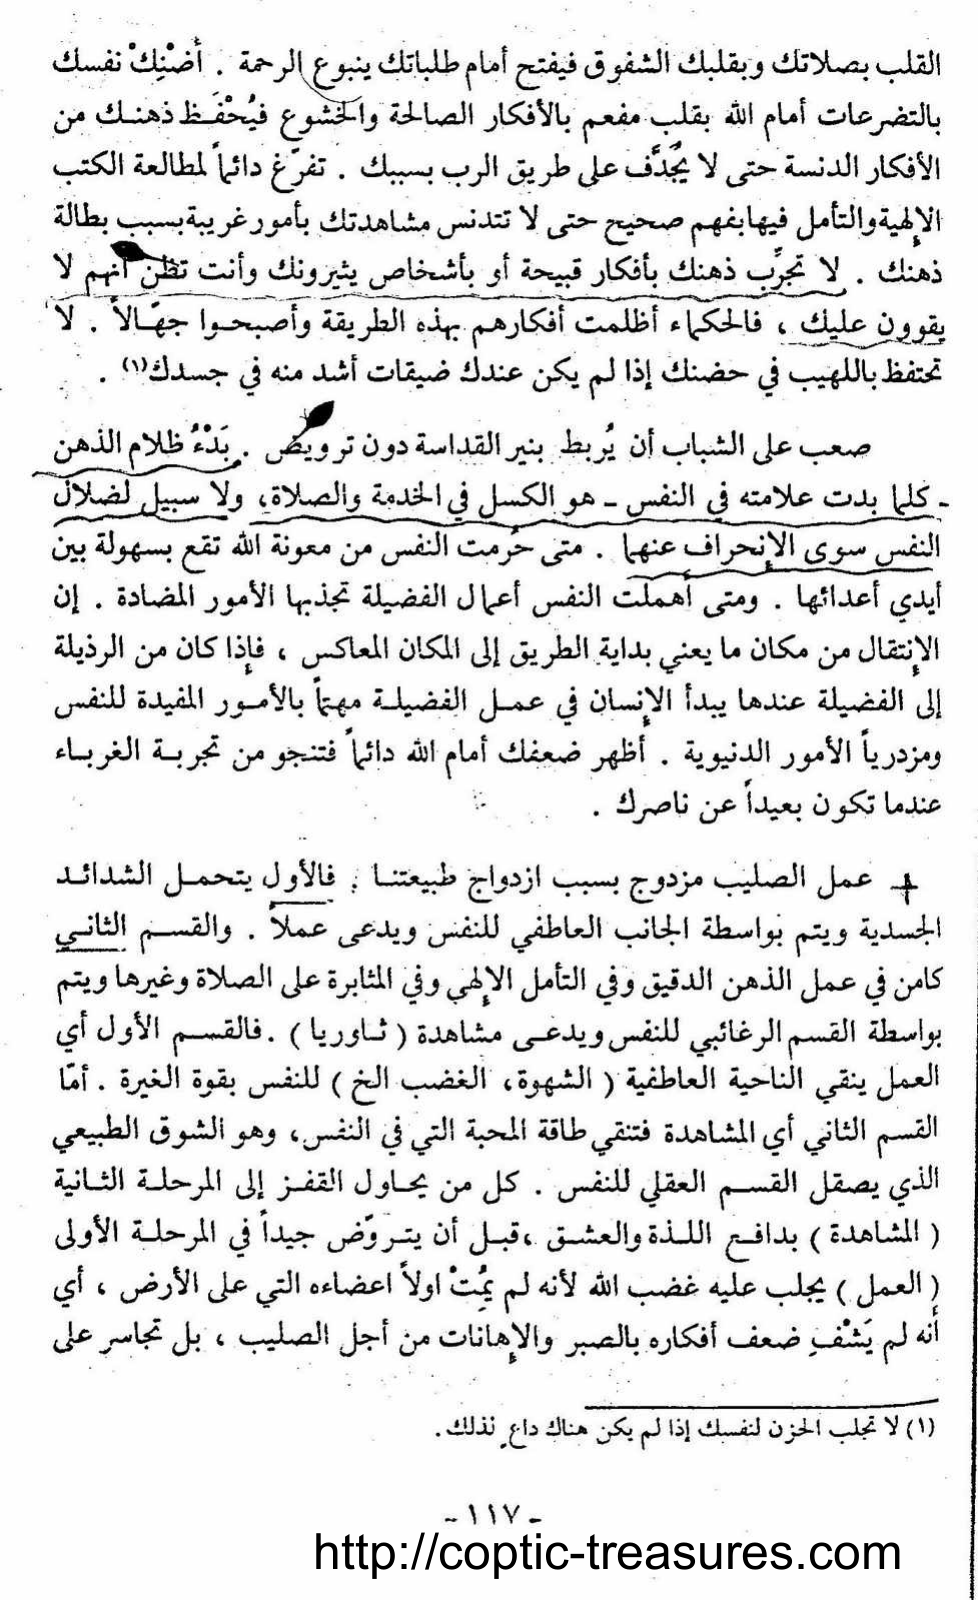 القلب بصلاتك وبقلبك الشفوق فيفتح أمام طلباتك ينبوع الرحمة . أضْنِكْ نفسك
بالتضرعات أمام الله بقلب مفعم بالأفكار الصالحة والخشوع فيُحْفَظ ذهنك من
الأفكار الدنسة حتى لا يُجدَّف على طريق الرب بسببك . تفرّغ دائماً لمطالعة الكتب
الإلهية والتأمل فيها بفهم صحيح حتى لا تتدنس مشاهدتك بأمور غريبة بسبب بطالة
ذهنك . لا تجرِّب ذهنك بأفكار قبيحة أو بأشخاص يثيرونك وأنت تظن أنهم لا
يقوون عليك ، فالحكماء أظلمت أفكارهم بهذه الطريقة وأصبحوا جهّالاً . لا
تحتفظ باللهيب في حضنك إذا لم يكن عندك ضيقات أشد منه في جسدك(١) .
صعب على الشباب أن يُربط بنير القداسة دون ترويض . بَدْءُ ظلام الذهن
- كلما بدت علامته في النفس - هو الكسل في الخدمة والصلاة، ولا سبيل لضلال
النفس سوى الإنحراف عنهما . متى حُرمت النفس من معونة الله تقع بسهولة بين
أيدي أعدائها . ومتى أهملت النفس أعمال الفضيلة تجذبها الأمور المضادة . إن
الإنتقال من مكان ما يعني بداية الطريق إلى المكان المعاكس ، فإذا كان من الرذيلة
إلى الفضيلة عندها يبدأ الإنسان في عمل الفضيلة مهتماً بالأمور المفيدة للنفس
ومزدرياً الأمور الدنيوية . أظهر ضعفك أمام الله دائماً فتنجو من تجربة الغرباء
عندما تكون بعيداً عن ناصرك .
+ عمل الصليب مزدوج بسبب ازدواج طبيعتنا . فالأول يتحمل الشدائد
الجسدية ويتم بواسطة الجانب العاطفي للنفس ويدعى عملاً . والقسم الثاني
كامن في عمل الذهن الدقيق وفي التأمل الإلهي وفي المثابرة على الصلاة وغيرها ويتم
بواسطة القسم الرغائبي للنفس ويدعى مشاهدة ( ثاوريا ) . فالقسم الأول أي
العمل ينقي الناحية العاطفية ( الشهوة، الغضب الخ ) للنفس بقوة الغيرة . أمّا
القسم الثاني أي المشاهدة فتنقي طاقة المحبة التي في النفس، وهو الشوق الطبيعي
الذي يصقل القسم العقلي للنفس . كل من يحاول القفز إلى المرحلة الثانية
( المشاهدة ) بدافع اللذة والعشق ، قبل أن يتروّض جيداً في المرحلة الأولى
( العمل ) يجلب عليه غضب الله لأنه لم يُمِتْ اولاً اعضاءه التي على الأرض ، أي
أنه لم يَشْفِ ضعف أفكاره بالصبر والإهانات من أجل الصليب ، بل تجاسر على
(١) لا تجلب الحزن لنفسك إذا لم يكن هناك داعٍ لذلك.
- ١١٧ -
http://coptic-treasures.com